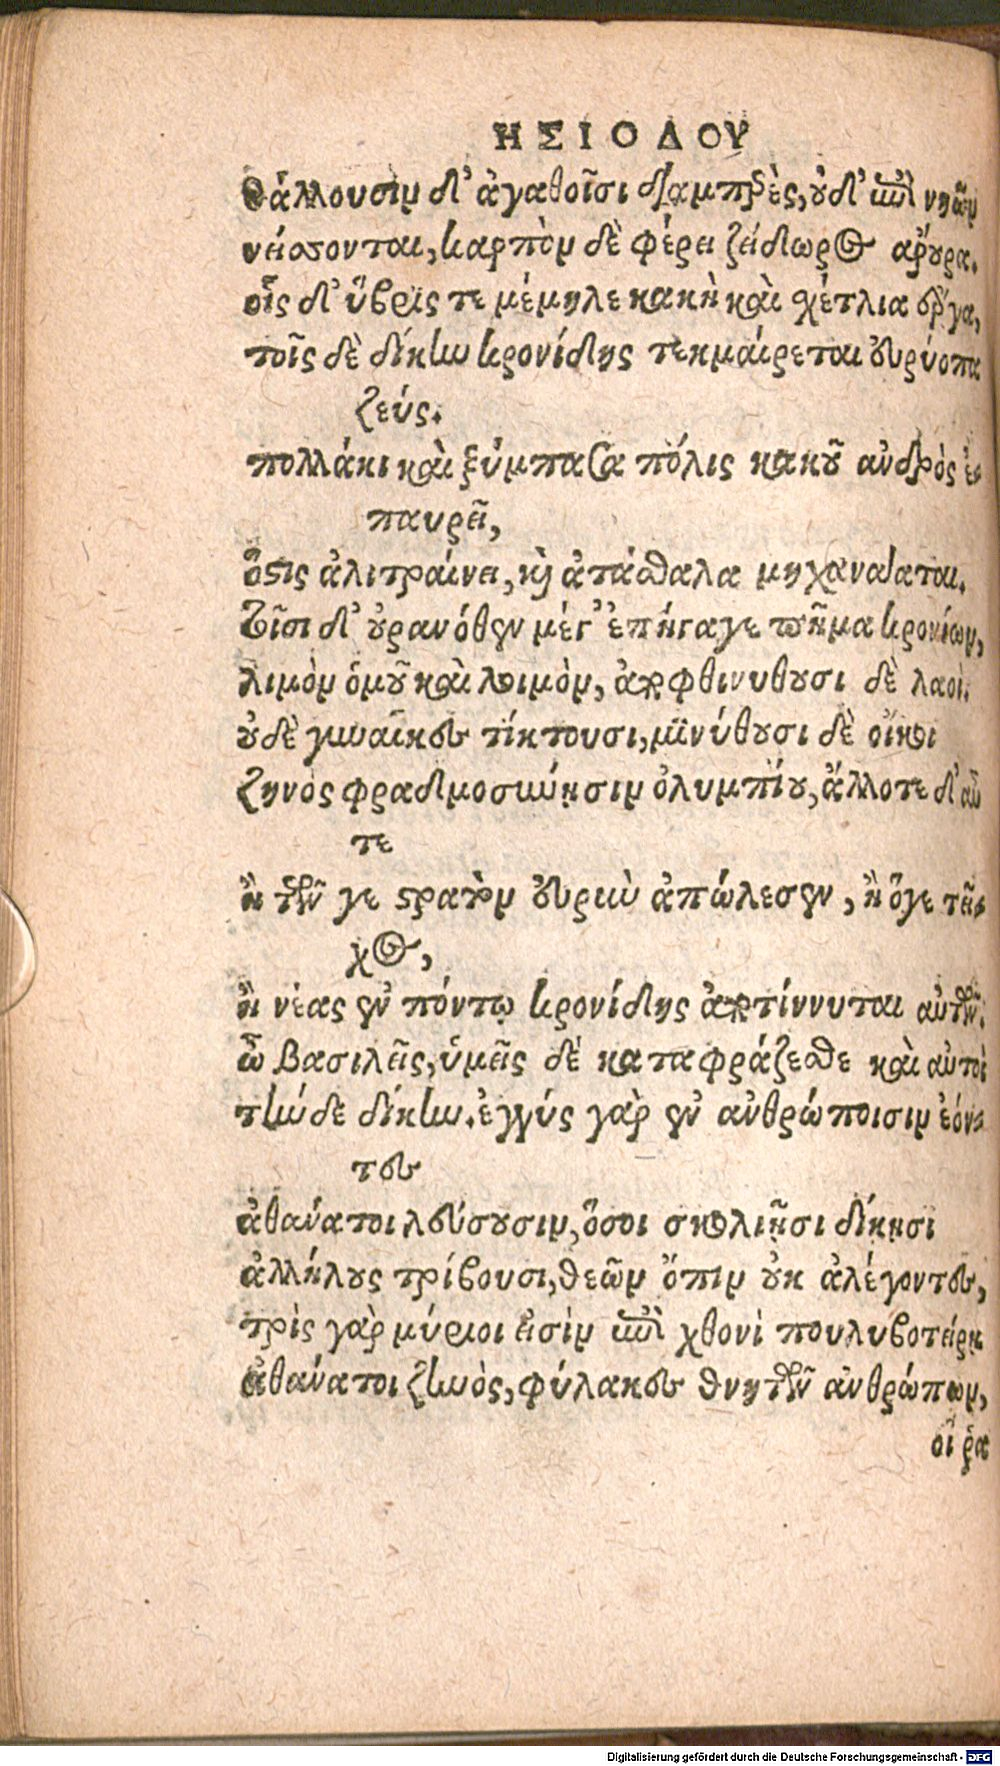 ΗΣΙΟΔΟΥ
θάλλουσιν δ' ἀγαθοῖσι διαμπερὲς, οὐδ' ἐπὶ νηῶν
νείσσονται, καρπὸν δὲ φέρει ζείδωρος ἄρουρα.
οἷς δ' ὕβρις τε μέμηλε κακὴ καὶ σχέτλια ἔργα,
τοῖς δὲ δίκην κρονίδης τεκμαίρεται εὐρύοπα
ζεύς.
πολλάκι καὶ ξύμπασα πόλις κακοῦ ἀνδρὸς ἐ-
παυρεῖ,
ὅστις ἀλιτραίνει, καὶ ἀτάσθαλα μηχανάαται.
τοῖσι δ' οὐρανόθεν μέγ' ἐπήγαγε πῆμα κρονίων,
λιμὸν ὁμοῦ καὶ λοιμὸν, ἀποφθινύθουσι δὲ λαοὶ.
οὐδὲ γυναῖκες τίκτουσι, μινύθουσι δὲ οἶκοι
ζηνὸς φραδμοσύνῃσιν ὀλυμπίου, ἄλλοτε δ' αὖ
τε
ἢ τῶν γε στρατὸν εὐρὺν ἀπώλεσεν, ἢ ὅγε τεῖ-
χος,
ἢ νέας ἐν πόντῳ κρονίδης ἀποτίννυται αὐτῶν.
ὦ βασιλεῖς, ὑμεῖς δὲ καταφράζεσθε καὶ αὐτοὶ
τήνδε δίκην. ἐγγύς γὰρ ἐν ἀνθρώποισιν ἐόν-
τες
ἀθάνατοι λεύσουσιν, ὅσοι σκολιῇσι δίκῃσι
ἀλλήλους τρίβουσι, θεῶν ὄπιν οὐκ ἀλέγοντες,
τρὶς γὰρ μύριοι εἰσὶν ἐπὶ χθονὶ πουλυβοτείρῃ
ἀθάνατοι ζηνὸς, φύλακες θνητῶν ἀνθρώπων,
οἵ ῥα
Digitalisierung gefördert durch die Deutsche Forschungsgemeinschaft - DFG